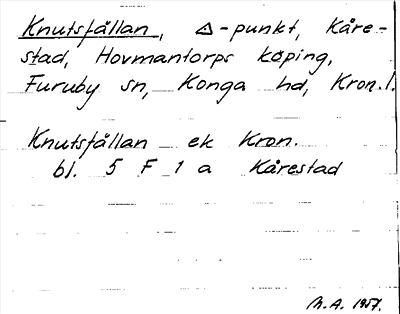 Knutsfällan, △-punkt, Kåre-
stad, Hovmantorps köping,
Furuby sn, Konga hd, Kron.l.
Knutsfällan ek Kron.
bl. 5 F 1 a Kårestad
M.A. 1957.